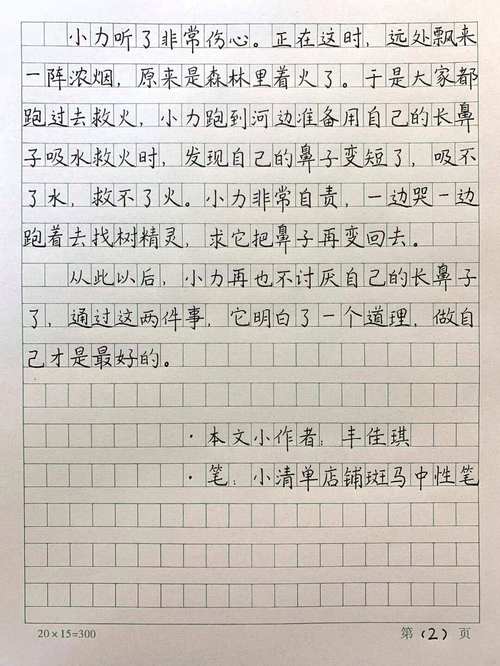 小力听了非常伤心。正在这时，远处飘来
一阵浓烟，原来是森林里着火了。于是大家都
跑过去救火，小力跑到河边准备用自己的长鼻
子吸水救火时，发现自己的鼻子变短了，吸不
了水，救不了火。小力非常自责，一边哭一边
跑着去找树精灵，求它把鼻子再变回去。
从此以后，小力再也不讨厌自己的长鼻子
了，通过这两件事，它明白了一个道理，做自
己才是最好的。
·本文小作者：丰佳琪
·笔：小清单店铺斑马中性笔
20×15=300
第（2）页